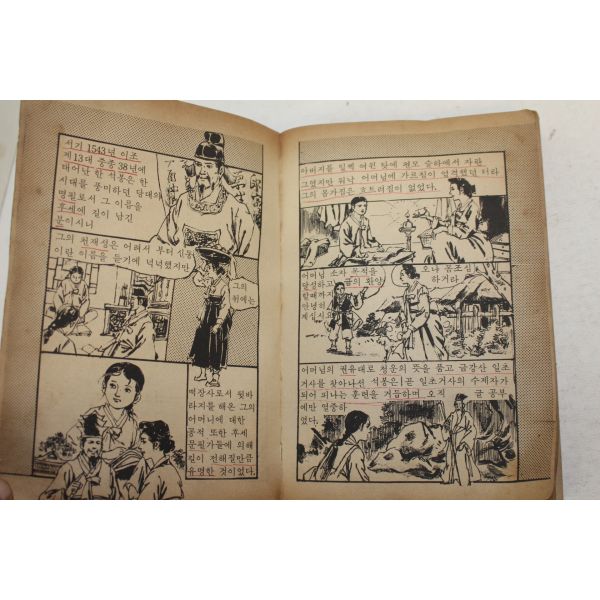 서기 1543년 이조
제13대 중종 38년에
태어난 한 석봉은 한
시대를 풍미하던 당대의
명필로서 그 이름을
후세에 길이 남긴
분이시니
그의 천재성은 어려서 부터 신동
이란 이름을 듣기에 넉넉했지만
그의
뒤에는
떡장사로서 뒷바
라지를 해온 그의
어머니에 대한
공적 또한 후세
문필가들에 의해
길이 전해질만큼
유명한 것이었다.
아버지를 일찍 여윈 탓에 편모 슬하에서 자란
그였지만 워낙 어머님에 가르침이 엄격했던 터라
그의 몸가짐은 흐트러짐이 없었다.
어머님 소자 목적을
달성하고
할때까지
안녕히
계십시요
오냐 몸조심
하거라
어머님의 권유대로 청운의 뜻을 품고 금강산 일초
거사를 찾아나선 석봉은 곧 일초거사의 수제자가
되어 피나는 훈련을 거듭하며 오직 글 공부
에만 열중하
였다.